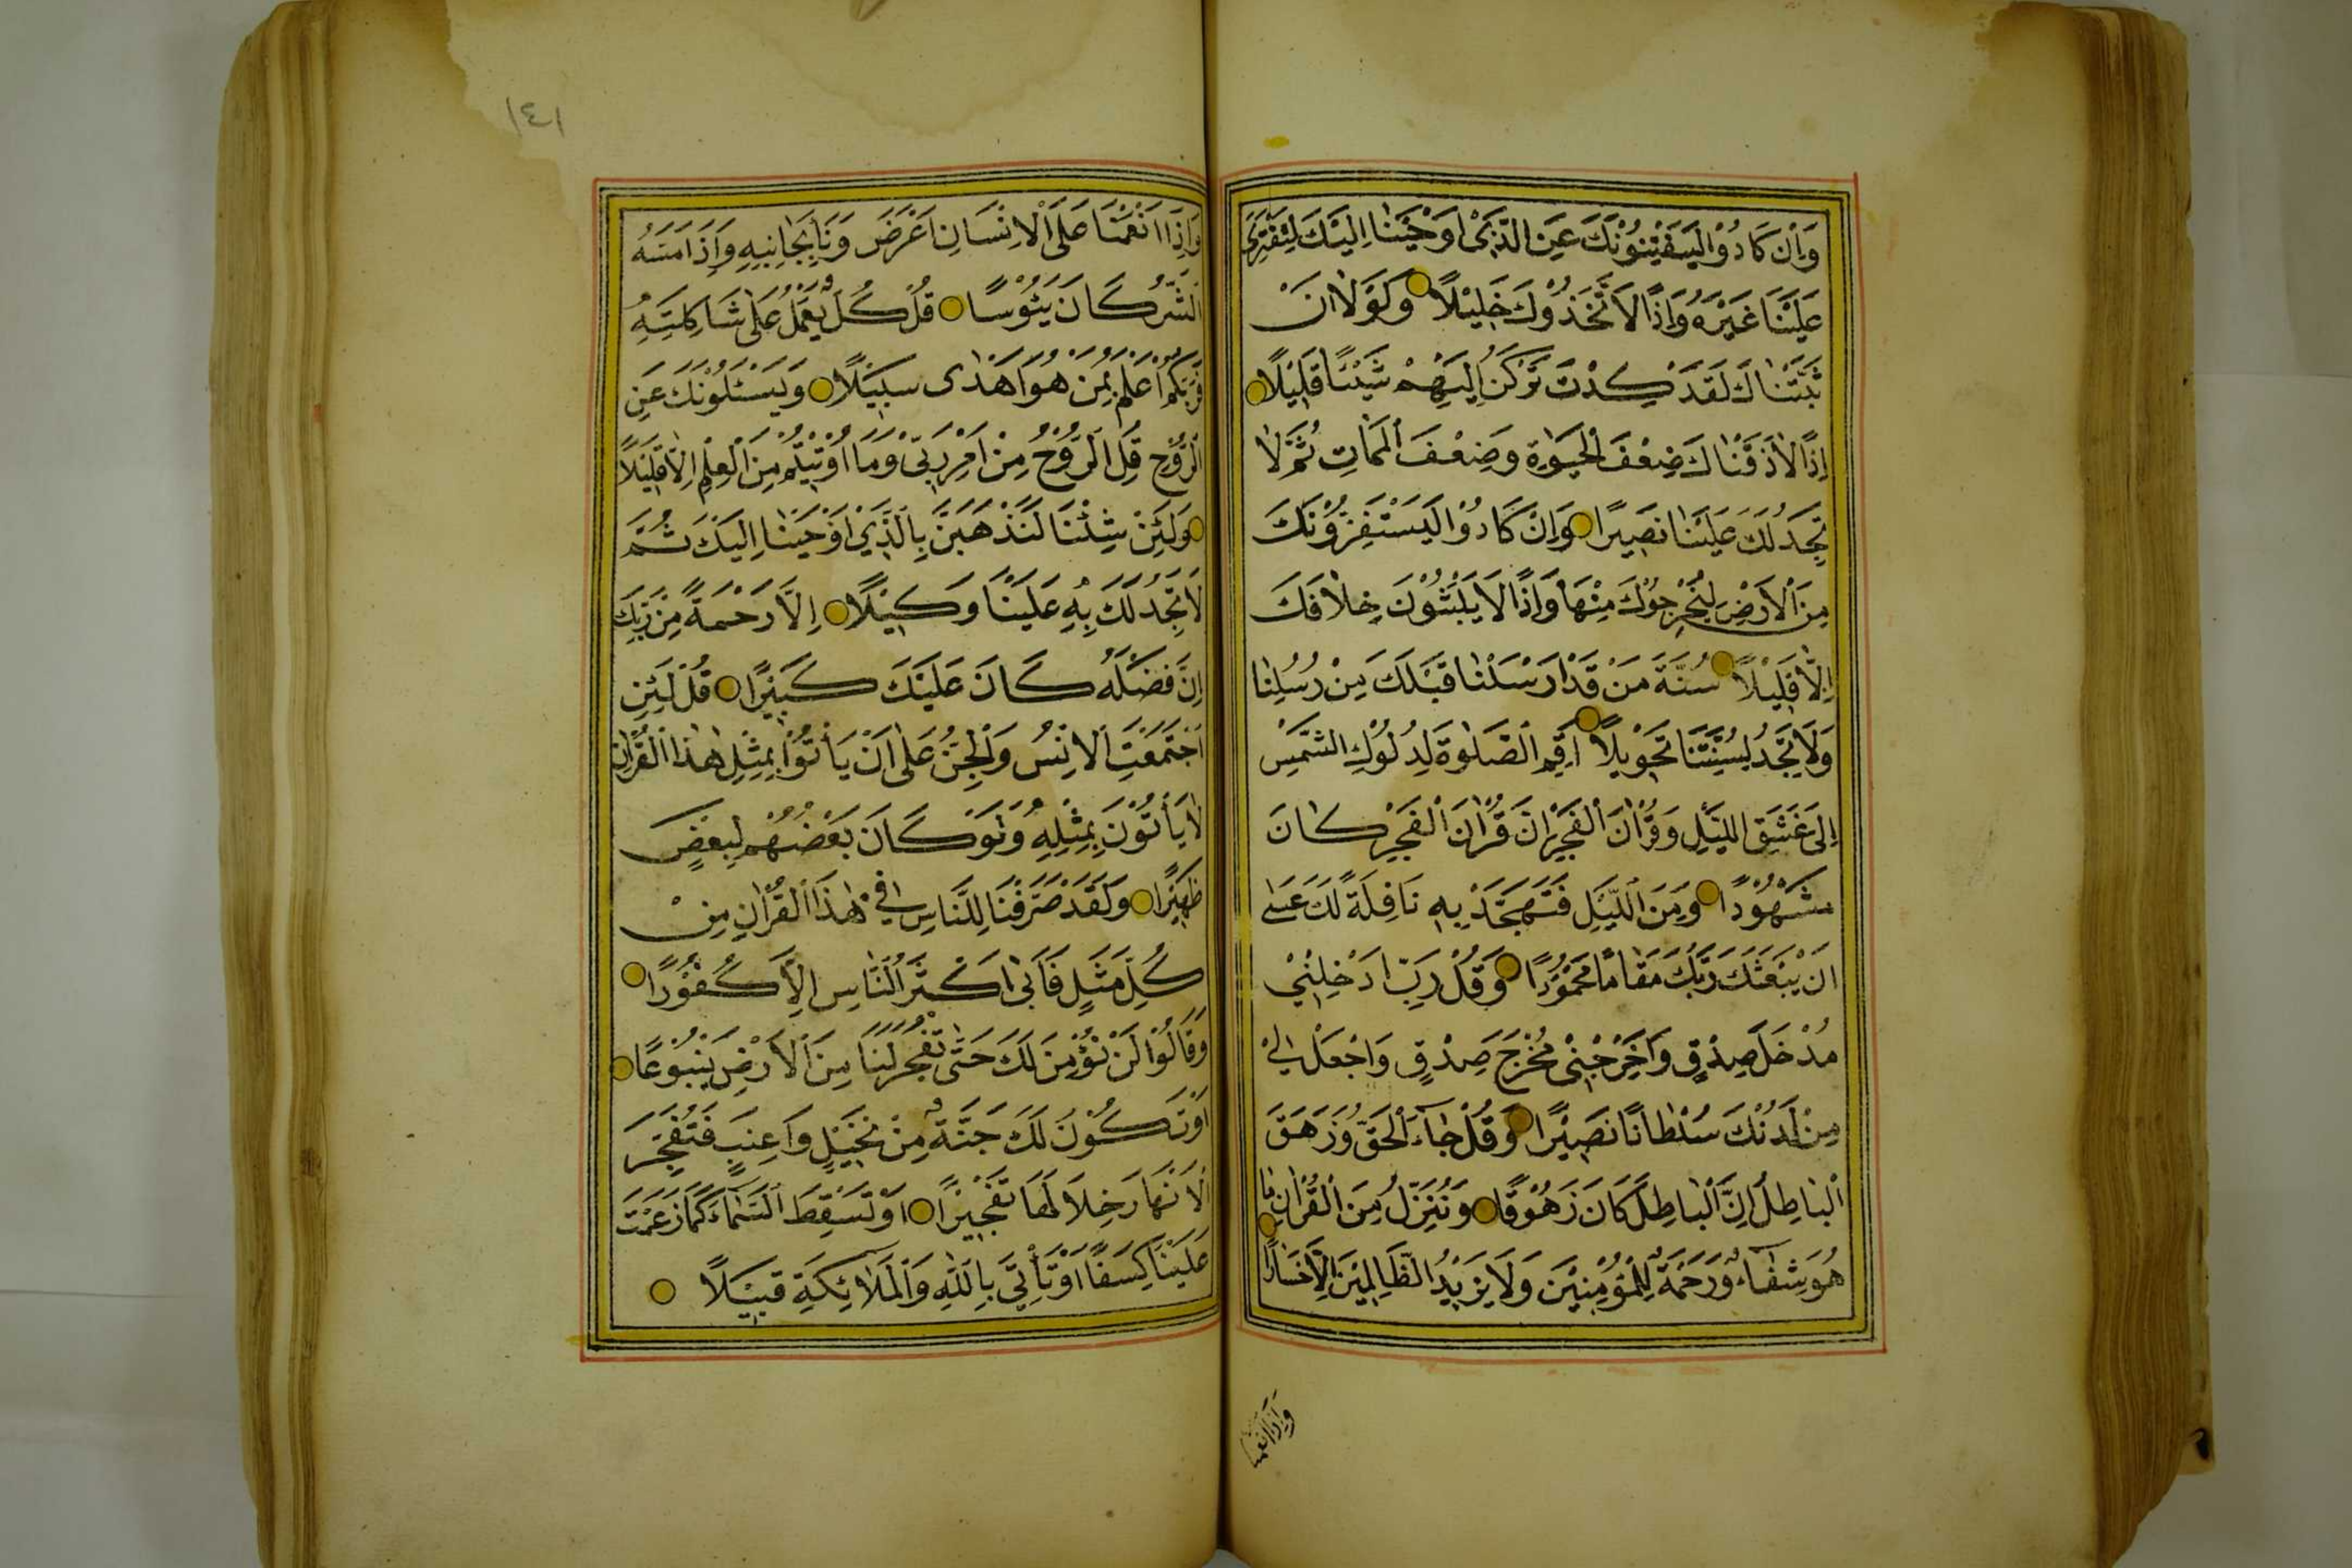 وَاِنْ كَادُوْا لَيَفْتِنُوْنَكَ عَنِ الَّذِىْ اَوْحَيْنَا اِلَيْكَ لِتَفْتَرِىَ
عَلَيْنَا غَيْرَهُ وَاِذًا لَاتَّخَذُوْكَ خَلِيْلًا وَلَوْلَا اَنْ
ثَبَّتْنَاكَ لَقَدْ كِدْتَ تَرْكَنُ اِلَيْهِمْ شَيْئًا قَلِيْلًا
اِذًا لَاَذَقْنَاكَ ضِعْفَ الْحَيٰوةِ وَضِعْفَ الْمَمَاتِ ثُمَّ لَا
تَجِدُ لَكَ عَلَيْنَا نَصِيْرًا وَاِنْ كَادُوْا لَيَسْتَفِزُّوْنَكَ
مِنَ الْاَرْضِ لِيُخْرِجُوْكَ مِنْهَا وَاِذًا لَا يَلْبَثُوْنَ خِلَافَكَ
اِلَّا قَلِيْلًا سُنَّةَ مَنْ قَدْ اَرْسَلْنَا قَبْلَكَ مِنْ رُسُلِنَا
وَلَا تَجِدُ لِسُنَّتِنَا تَحْوِيْلًا اَقِمِ الصَّلٰوةَ لِدُلُوْكِ الشَّمْسِ
اِلٰى غَسَقِ اللَّيْلِ وَقُرْاٰنَ الْفَجْرِ اِنَّ قُرْاٰنَ الْفَجْرِ كَانَ
مَشْهُوْدًا وَمِنَ اللَّيْلِ فَتَهَجَّدْ بِهِ نَافِلَةً لَكَ عَسٰى
اَنْ يَبْعَثَكَ رَبُّكَ مَقَامًا مَحْمُوْدًا وَقُلْ رَبِّ اَدْخِلْنِيْ
مُدْخَلَ صِدْقٍ وَاَخْرِجْنِيْ مُخْرَجَ صِدْقٍ وَاجْعَلْ لِيْ
مِنْ لَدُنْكَ سُلْطَانًا نَصِيْرًا وَقُلْ جَاءَ الْحَقُّ وَزَهَقَ
الْبَاطِلُ اِنَّ الْبَاطِلَ كَانَ زَهُوْقًا وَنُنَزِّلُ مِنَ الْقُرْاٰنِ مَا
هُوَ شِفَاءٌ وَرَحْمَةٌ لِلْمُؤْمِنِيْنَ وَلَا يَزِيْدُ الظَّالِمِيْنَ اِلَّا خَسَارًا
وَاِذَا اَنْعَمْنَا
١٤١
وَاِذَا اَنْعَمْنَا عَلَى الْاِنْسَانِ اَعْرَضَ وَنَاٰ بِجَانِبِهِ وَاِذَا مَسَّهُ
الشَّرُّ كَانَ يَئُوْسًا قُلْ كُلٌّ يَعْمَلُ عَلٰى شَاكِلَتِهِ
فَرَبُّكُمْ اَعْلَمُ بِمَنْ هُوَ اَهْدٰى سَبِيْلًا وَيَسْئَلُوْنَكَ عَنِ
الرُّوْحِ قُلِ الرُّوْحُ مِنْ اَمْرِ رَبِّيْ وَمَا اُوْتِيْتُمْ مِنَ الْعِلْمِ اِلَّا قَلِيْلًا
وَلَئِنْ شِئْنَا لَنَذْهَبَنَّ بِالَّذِيْ اَوْحَيْنَا اِلَيْكَ ثُمَّ
لَا تَجِدُ لَكَ بِهِ عَلَيْنَا وَكِيْلًا اِلَّا رَحْمَةً مِنْ رَبِّكَ
اِنَّ فَضْلَهُ كَانَ عَلَيْكَ كَبِيْرًا قُلْ لَئِنِ
اجْتَمَعَتِ الْاِنْسُ وَالْجِنُّ عَلٰى اَنْ يَأْتُوْا بِمِثْلِ هٰذَا الْقُرْاٰنِ
لَا يَأْتُوْنَ بِمِثْلِهِ وَلَوْ كَانَ بَعْضُهُمْ لِبَعْضٍ
ظَهِيْرًا وَلَقَدْ صَرَّفْنَا لِلنَّاسِ فِيْ هٰذَا الْقُرْاٰنِ مِنْ
كُلِّ مَثَلٍ فَاَبٰى اَكْثَرُ النَّاسِ اِلَّا كُفُوْرًا
وَقَالُوْا لَنْ نُؤْمِنَ لَكَ حَتّٰى تَفْجُرَ لَنَا مِنَ الْاَرْضِ يَنْبُوْعًا
اَوْ تَكُوْنَ لَكَ جَنَّةٌ مِنْ نَخِيْلٍ وَاَعِنَبٍ فَتُفَجِّرَ
الْاَنْهَارَ خِلَالَهَا تَفْجِيْرًا اَوْ تُسْقِطَ السَّمَاءَ كَمَا زَعَمْتَ
عَلَيْنَا كِسَفًا اَوْ تَأْتِيَ بِاللّٰهِ وَالْمَلَائِكَةِ قَبِيْلًا